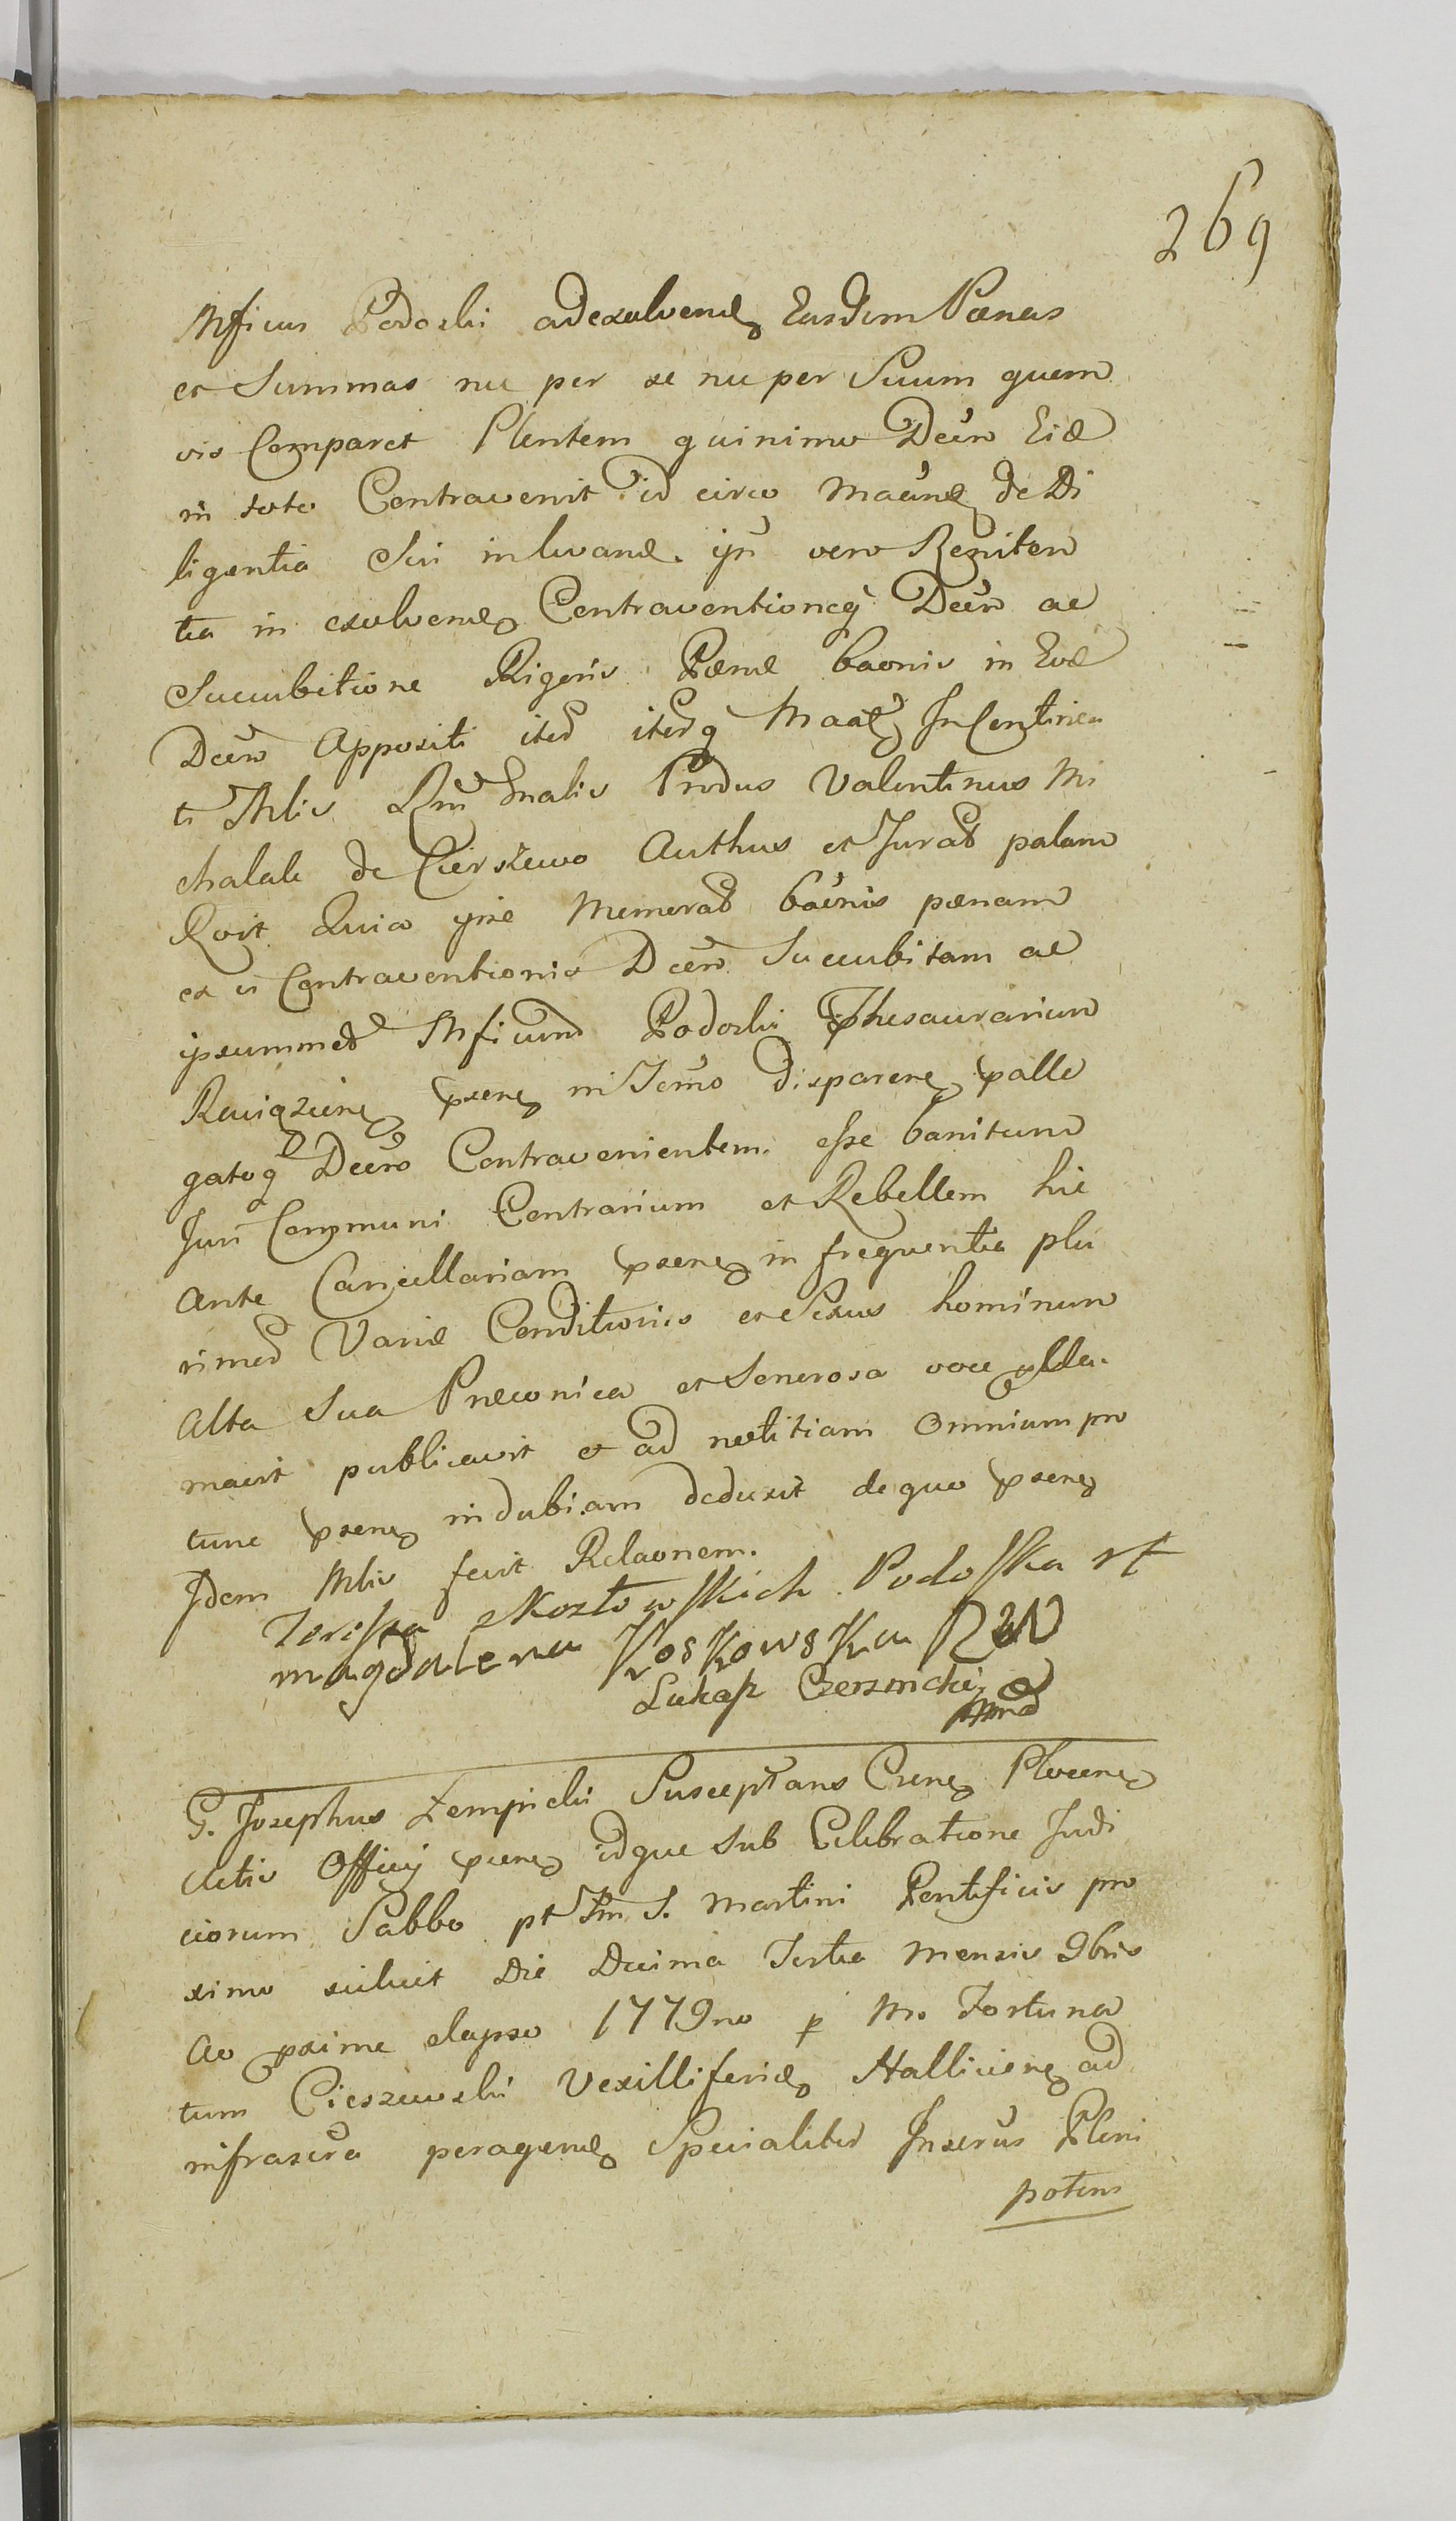 269
Mficus Podoski adexolvend Easdem Pœnas
et Summas nu per se nu per Suum quem
vis Comparet Plentem quinimo Decro Eid
in toto Contravenit id circo de Di
ligentia Sui vero Reniten
tia in exolvend Contraventioneq Decro ac
Succubitione Rigoris Pœnæ baonis in Eod
Decro Appositi iterq
ti Mlis Gnalis Produs Valentinus Mi
chalak de Cierszewo Authus et Jurat palam
Rovit Quia Memorat pœnam
ex vi Contraventionis Decro Succubitam ac
ipsummet Mficum Podoski Thesaurarium
psene in disparene palle
gatoq Decro Contravenientem esse banitum
Juri Communi Contrarium et Rebellem hic
Ante Cancellariam psene in frequentia plu
rimor Variæ Conditionis et Sexus hominum
Alta Sua Præconica et Sonorosa voce
mavit publicavit et ad notitiam Omnium pro
tunc psene indubiam deduxit de quo psene
Idem Mlis fecit Relaonem.
Teressa z Kozłowskich Podoska
magdalena Koskowska
Lukasz Czerznicki mp
G. Josephus Zempicki Susceptans Crene Plocene
Actis Officij psene idque sub Celebratione Judi
ciorum Sabbo pt Fm S. Martini Pontificis pro
ximo scilicet Die Decima Tertia Mensis 9bris
Ao pxime elapso 1779no p M. Fortuna
tum Cieszewski Vexilliferid Halliciene ad
infrascra peragend Specialiter Pleni
potens